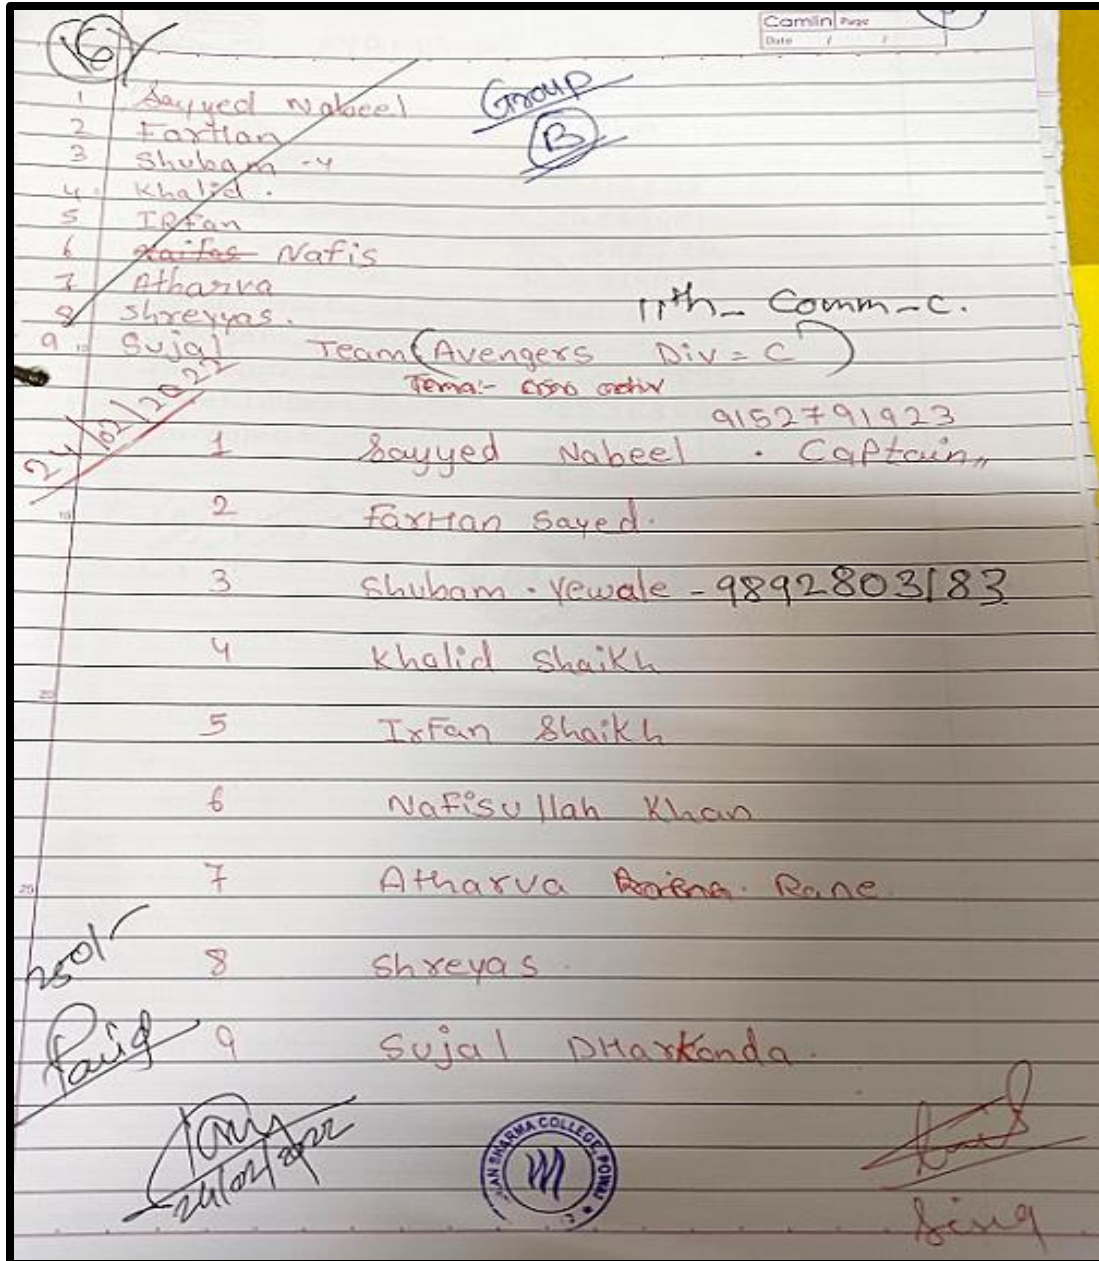 16
Camlin Page
Date / /
Group
B
1 Sayyed Nabeel
2 FarHan
3 Shubam -Y
4 Khalid.
5 IRFan
6 Nafis
7 Atharva
8 Shreyyas.
9 Sujal
11th - Comm - C.
Team (Avengers Div = C)
24/02/2022
9152791923
1 Sayyed Nabeel . Captain,,
2 FarHan Sayed.
3 Shubam . Yewale - 9892803183
4 Khalid Shaikh
5 IrFan Shaikh
6 NaFisullah Khan
7 Atharva Rane.
8 Shreyas.
9 Sujal DHarkonda.
250/-
Paid
24/02/2022
SHARMA COLLEGE, POWAI